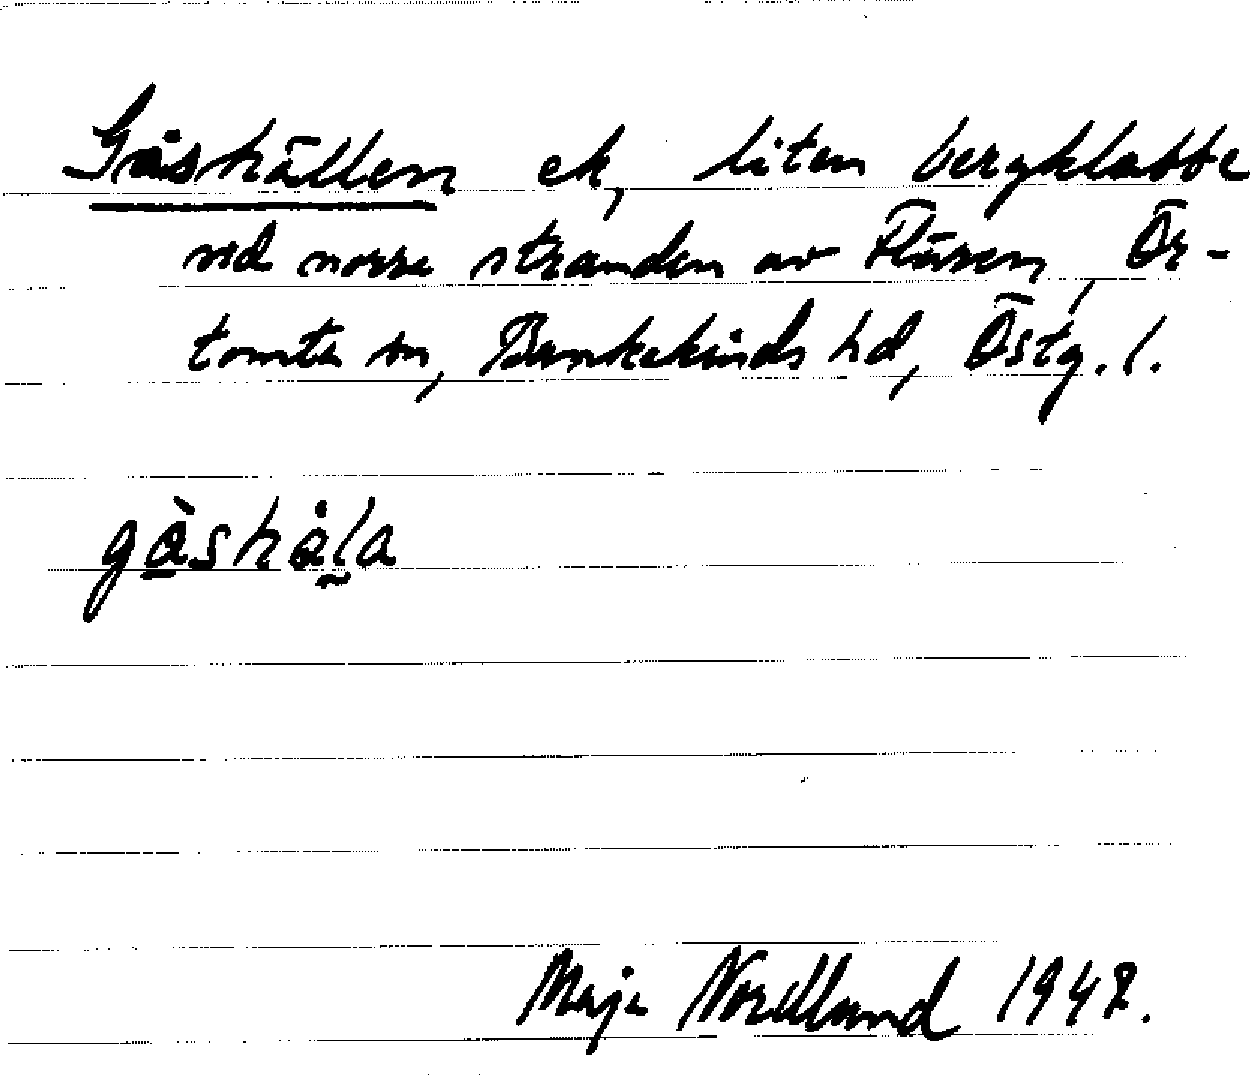 Gåshällen ek, liten bergklabbe
vid norra stranden av Flären, Ör-
tomta sn, Bankekinds hd, Östg. l.
gåshåla
Maja Nordlund 1947.